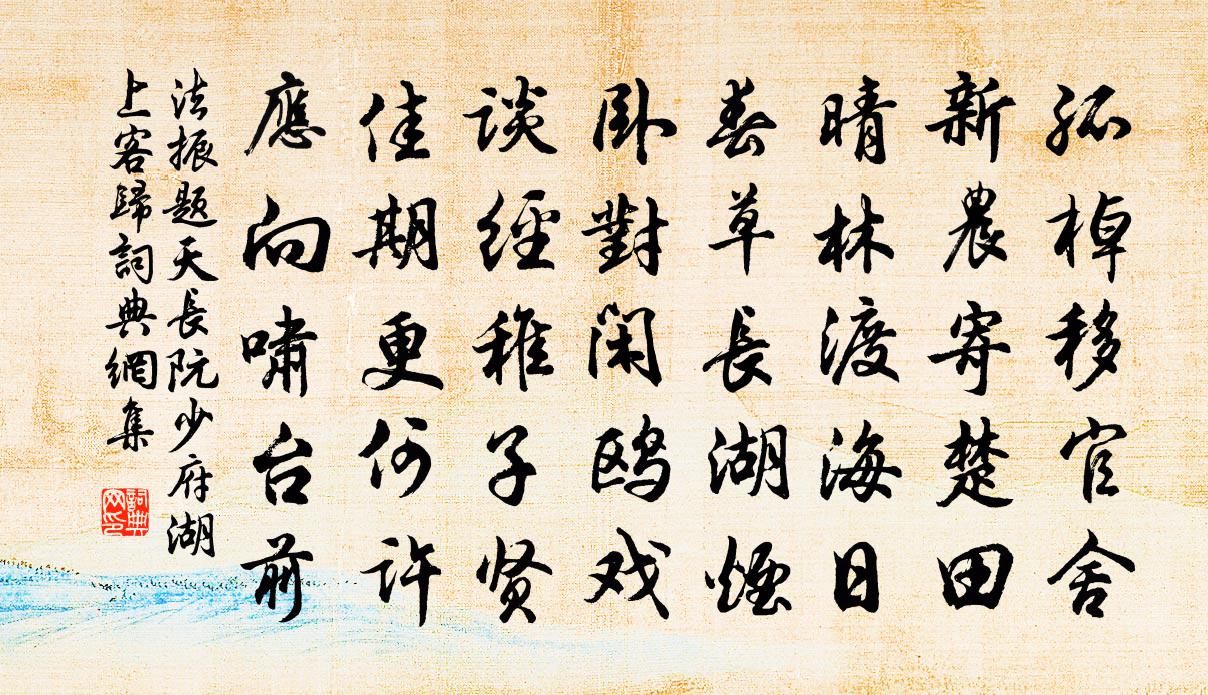 孤棹移官舍
新農寄楚田
晴林渡海日
春草長湖煙
卧對閑鸥戏
谈經稚子贤
佳期更何许
應向嘯台前
法振题天長阮少府湖
上客歸詞典網集
詞典
网印